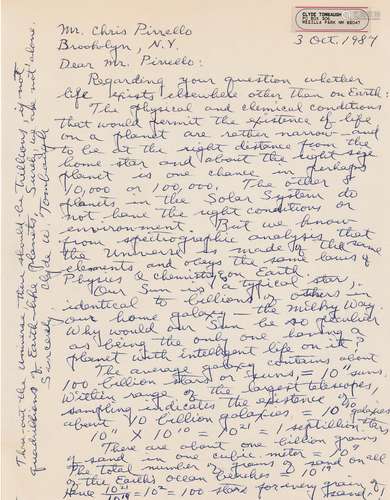 CLYDE TOMBAUGH
PO BOX 306
MESILLA PARK NM 88047
3 Oct. 1987
Mr. Chris Pirrello
Brooklyn, N.Y.
Dear Mr. Pirrello:
Regarding your question whether
life exists elsewhere other than on Earth:
The physical and chemical conditions
that would permit the existence of life
on a planet are rather narrow - and
to be at the right distance from the
home star and about the right size
planet is one chance in perhaps
10,000 or 100,000. The other 8
planets in the Solar System do
not have the right conditions or
environment. But we know
from spectrographic analyses that
the Universe is made of the same
elements and obeys the same laws of
Physics & Chemistry on Earth.
Our Sun is a typical star,
identical to billions of others in
our home galaxy - the Milky Way.
Why would our Sun be so peculiar
as being the only one having a
planet with intelligent life on it?
The average galaxy contains about
100 billion stars or suns, = 10¹¹ suns.
Within range of the largest telescopes,
sampling indicates the existence of
about 10 billion galaxies = 10¹⁰ galaxies
10¹¹ X 10¹⁰ = 10²¹ = 1 septillion stars
There are about one billion grains
of sand in one cubic meter = 10⁹
The total number of grains of sand on all
of the Earth's ocean beaches = 10¹⁹
Hence 10²¹/10¹⁹ = 10² = 100 stars for every grain of
sand!
Thru-out the universe there should be trillions, if not
quadrillions of Earth-like planets. Surely, we are not alone.
Sincerely
Clyde W. Tombaugh